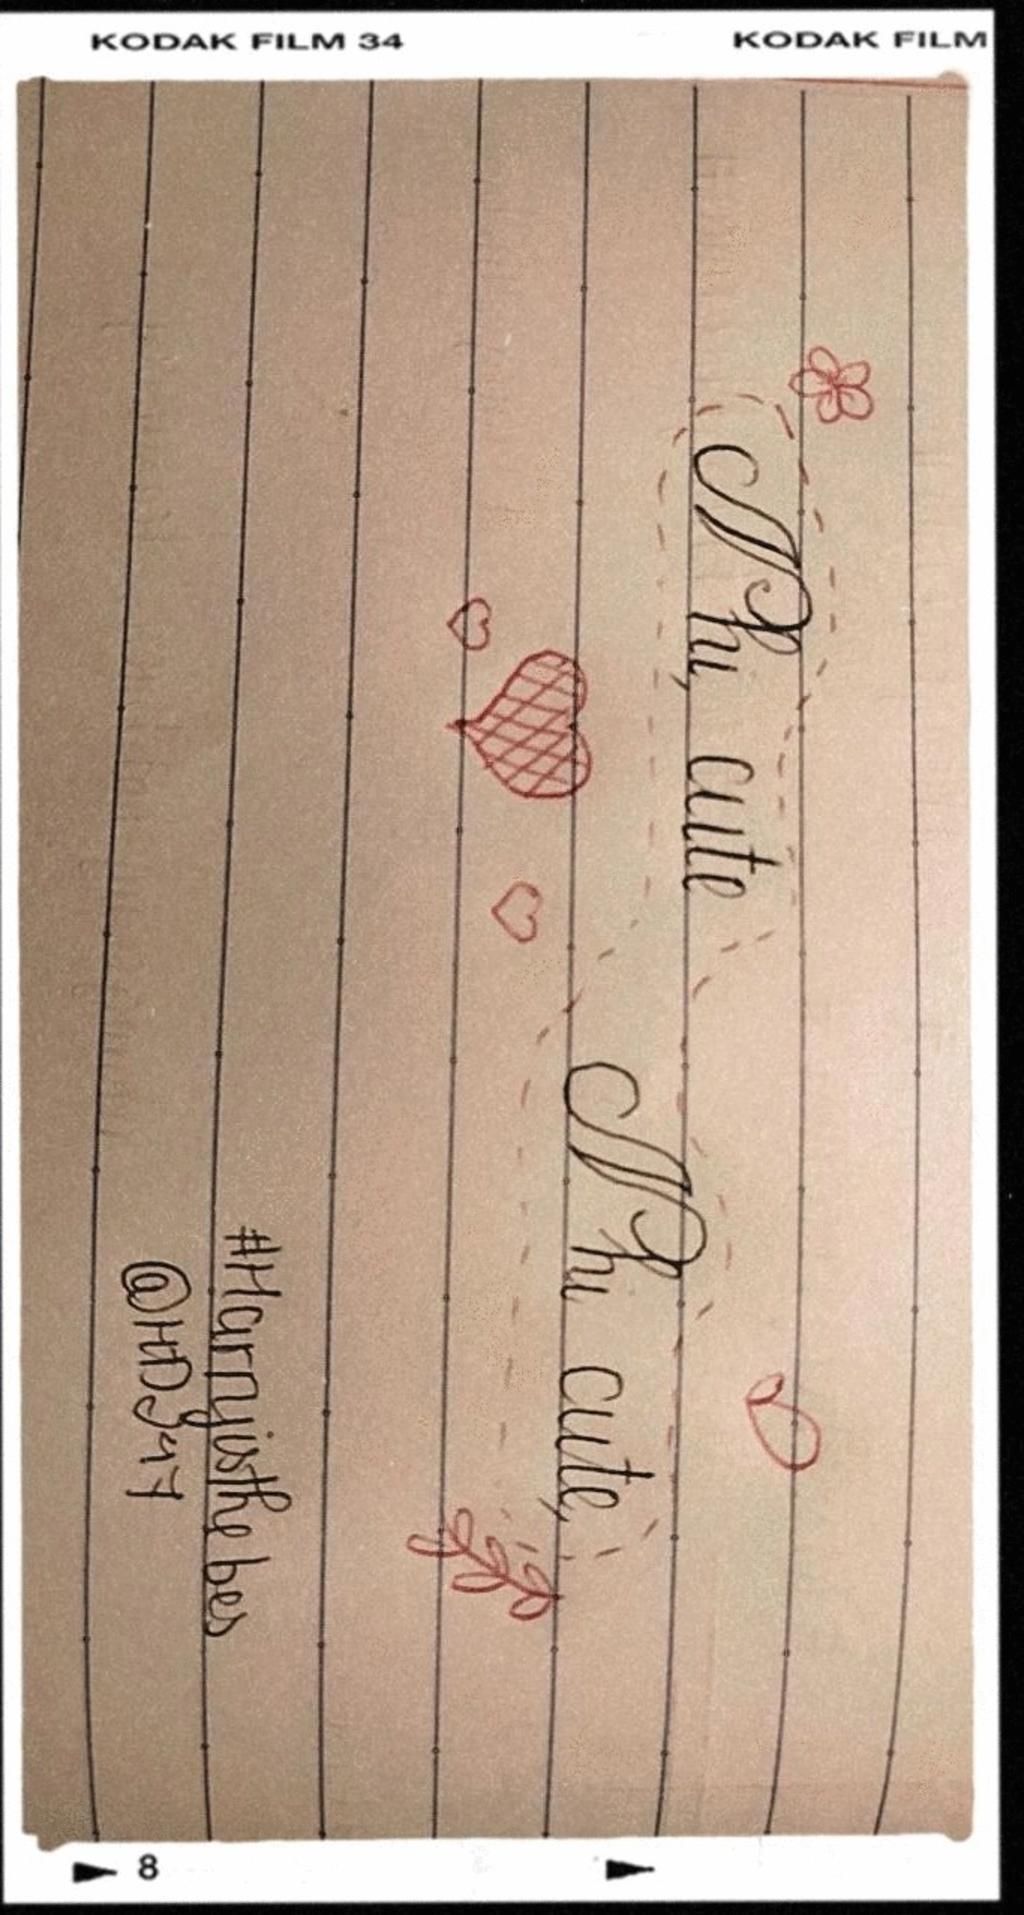 KODAK FILM 34
KODAK FILM
Nhi, cute
Nhi cute,
#Harnyisthebes
@HDJ47
8